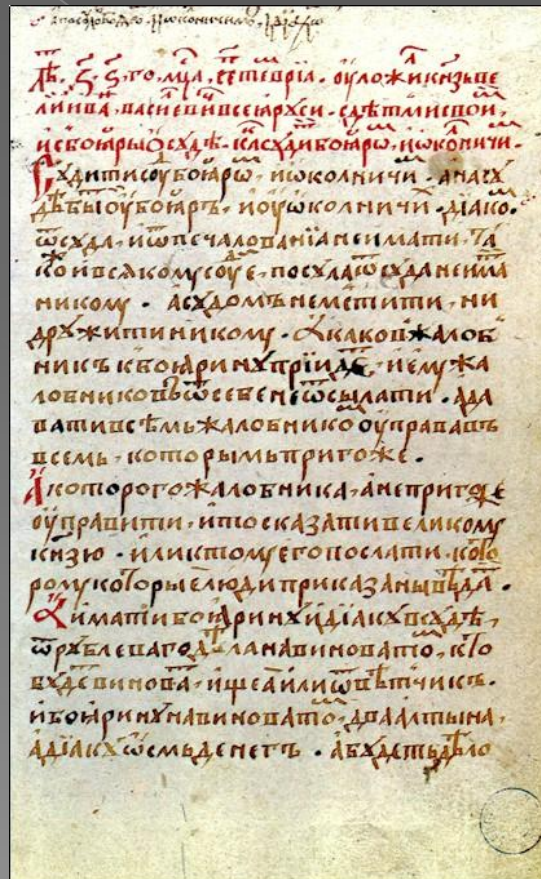 лѣ҇т҇ ҂з҃.ѕ҃.го, мцⷭ҇а, сеⷫ҇тевріа. оуложиⷧ҇ кнзь ве
ликіи иваⷩ҇, васиⷧ҇евиⷱ҇ всеіа рꙋси. с дѣтми свои,ⷨ
и с боіары о сꙋдѣ. каⷦ҇ сꙋдиⷮ҇ боіаро,ⷨ и ѡколничиⷨ.
Сꙋдити соуⷣ҇ боіароⷨ, и ѡколничиⷨ. а на сꙋ
дѣ быⷮ҇ оу боіаръ, и оу ѡколничиⷯ. діако.ⷨ
ѿ сꙋда, и ѿ печалованіа не имати, та
коⷤ҇ и всякомꙋ соуⷣ҇е, посула ѿ суда не има
никомꙋ. а сꙋдомъ не мстити, ни
дрꙋжити никомꙋ. А каковъ жалоб
никъ к боіаринꙋ пріидеⷮ, и емꙋ жа
лобниковъ ѿ себе не ѿсылати. а да
вати всѣмъ жалобникоⷨ оуправа въ
всемь, которымь пригоже.
А которого жалобника, а не пригоже
оуправити, и то сказати великомꙋ
кнзю. или к томꙋ его послати, кото
ромꙋ которые люди приказаны вѣдаⷮ.
А имати боіаринꙋ и діакꙋ в сꙋдѣ,
ѿ рꙋблеваго дѣла на виноватоⷨ, кто
бꙋдеⷮ виноваⷮ, ищеа или ѿвѣтчикъ.
и боіаринꙋ на виноватоⷨ, два алтына,
а діакꙋ ѡсмь денегъ. а бꙋдеть дѣло